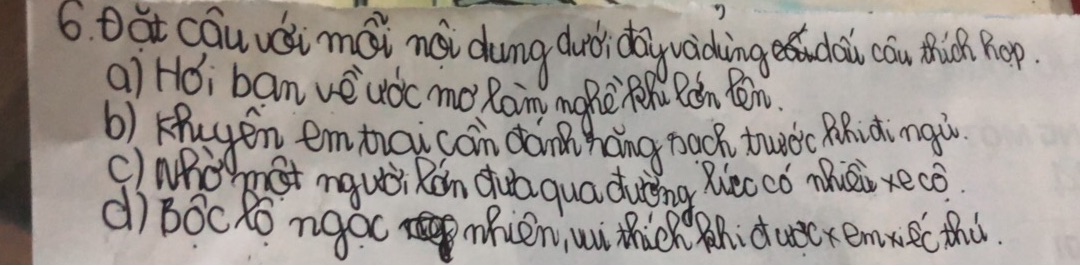 6. Đặt câu với mỗi nội dung dưới đây và dùng dấu câu thích hợp.
a) Hỏi bạn về ước mơ làm nghề khi lớn lên.
b) Khuyên em trai cần đánh răng sạch trước khi đi ngủ.
c) Nhờ một người lớn đưa qua đường lúc có nhiều xe cộ.
d) Bộc lộ ngạc nhiên, vui thích khi được xem xiếc thú.